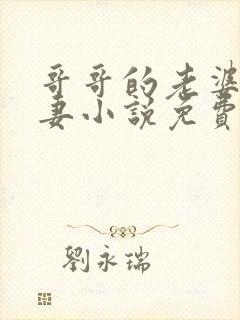 哥哥的老婆
妻小說免費
劉永瑞